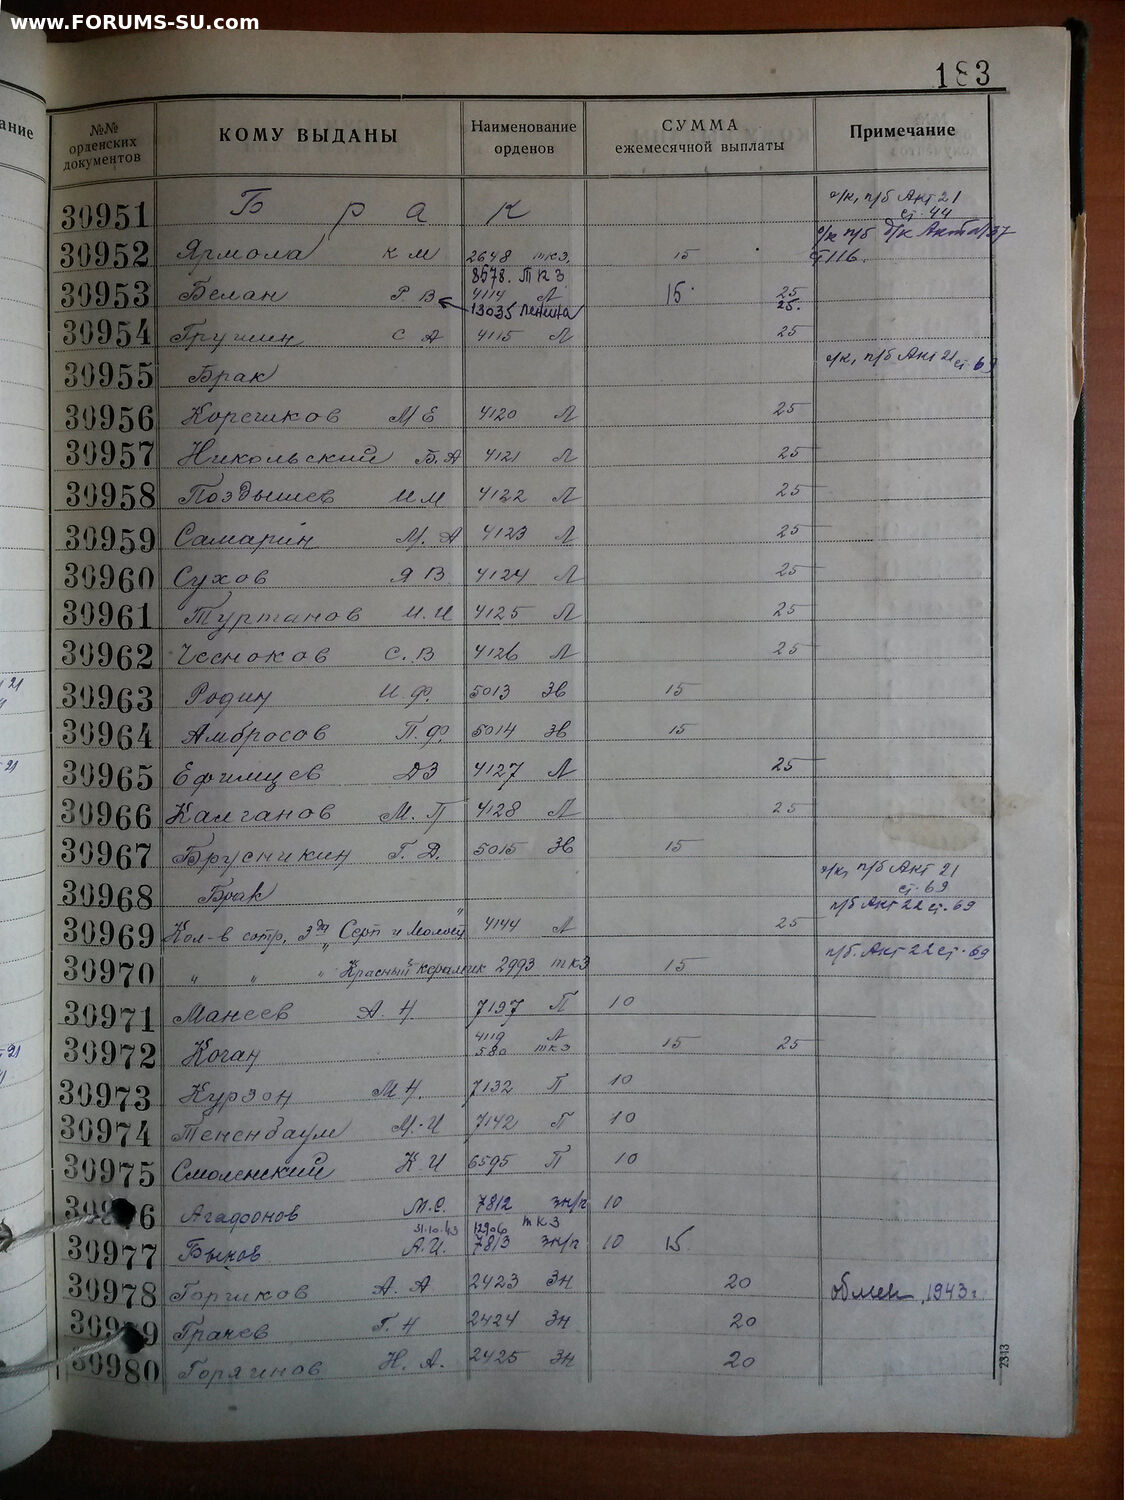 www.FORUMS-SU.com
183
ание
№№ орденских документов
КОМУ ВЫДАНЫ
Наименование орденов
СУММА ежемесячной выплаты
Примечание
30951 Брак о/к, п/б Акт 21 ст. 44
30952 Ярмола К М 2648 ткз. 15 о/к п/б
8578. ТКЗ
30953 Белан Р В 4114 Л 15 25
13035 Ленина 25.
30954 Грушин С А 4115 Л 25
30955 Брак о/к, п/б Акт 21 ст 69
30956 Корешков М Е 4120 Л 25
30957 Никольский Б.А 4121 Л 25
30958 Поздышев И М 4122 Л 25
30959 Самарин М. А 4123 Л 25
30960 Сухов Я В 4124 Л 25
30961 Туртанов И.И 4125 Л 25
30962 Чесноков С. В 4126 Л 25
30963 Родин И. Ф. 5013 Зв 15
30964 Амбросов П. Ф. 5014 Зв 15
30965 Ефимцев Д З 4127 Л 25
30966 Калганов М. П 4128 Л 25
30967 Брусникин Г. Д. 5015 Зв 15
30968 Брак о/к, п/б Акт 21 ст. 69
30969 Кол-в сотр. з-да "Серп и Молот" 4144 Л 25 п/б Акт 22 ст. 69
30970 " " " Красный керамик 2993 ткз 15 п/б. Акт 22 ст. 69
30971 Манеев А. Н. 7197 П 10
4119 Л
30972 Коган 580 ткз 15 25
30973 Курзон М Н. 7132 П 10
30974 Тененбаум М. И 7142 П 10
30975 Смоленский К И 6595 П 10
6 Агафонов М. С. 7812 зн/п 10
31.10.43 12906 ткз
30977 Быков А. И. 7813 зн/п 10 15
30978 Горшков А. А 2423 Зн 20 обмен 1943 г.
9 Грачев Г. Н 2424 Зн 20
30980 Горяинов Н. А. 2425 Зн 20
2313